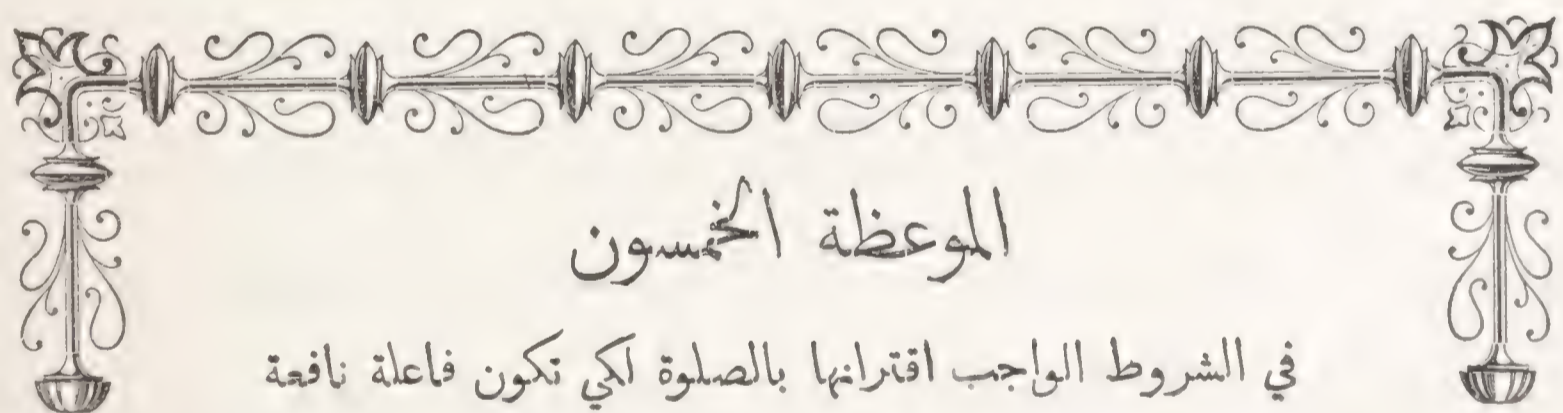 الموعظة الخمسون
في الشروط الواجب اقترانها بالصلوة لكي تكون فاعلة نافعة